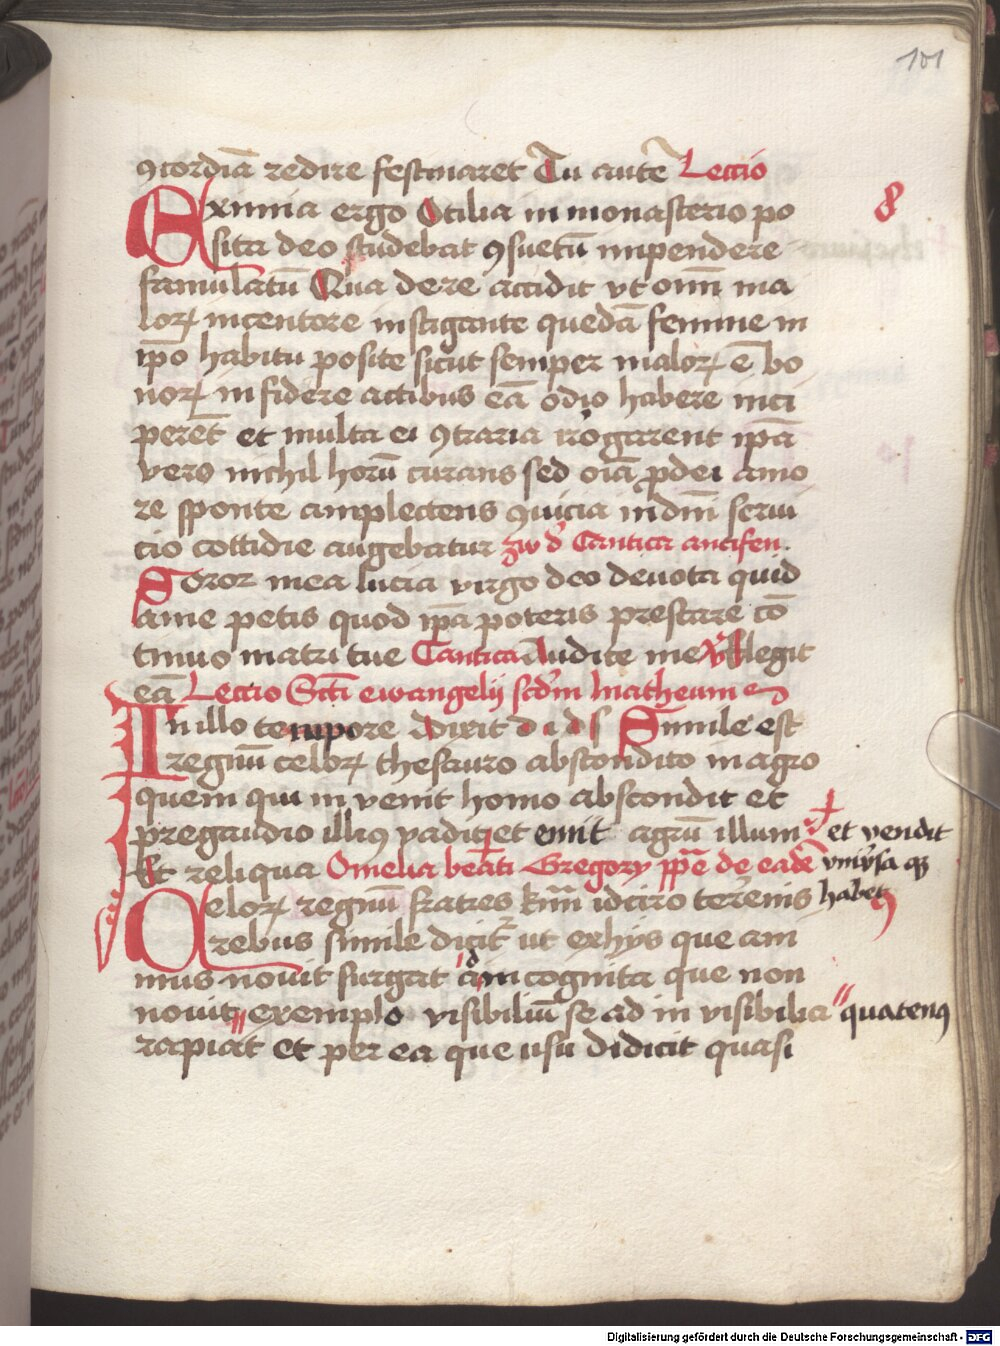 101
ꝯcordiā redire festinaret Tu autē Leccio
8
Eximia ergo Otilia in monasterio po
sita deo studebat ꝯsuetū impendere
famulatū Qua de re accidit vt om̄i ma
loꝝ incentore instigante quedā femine in
ip̄o habitu posite sicut semper maloꝝ ē bo
noꝝ in fidere actibus eā odio habere inci
perēt et multa ei ꝯtraria irrogarent ip̄a
vero nichil horū curans sed oīa ꝓ dei amo
re sponte amplectens ꝯuicia in dn̄i serui
cio cottidie augebatur zw d' Cantica antifen
Soror mea lucia virgo deo deuota quid
a me petis quod ip̄a poteris prestare cō
tinuo matri tue Cantica Audite me legit
eā Leccio Sc̄ti ewangelij scd̄m Matheum
In illo tempore dixit d i d s Simile est
regnū celoꝝ thesauro abscondito in agro
quem qui in venit homo abscondit et
pre gaudio illius vadit et emit agrū illum et vendit
Et reliqua Omelia beāti Gregory pp̄e de eadē vniu'sa q̄
Celoꝝ regnū fratres k̄mi idciro terrenis habet
rebus simile dicit' ut ex hijs que ani
mus nouit surgat ad in cognita que non
nouit exemplo visibiliū se ad in visibilia quatenꝰ
rapiat et per ea que usu didicit quasi
Digitalisierung gefördert durch die Deutsche Forschungsgemeinschaft - DFG